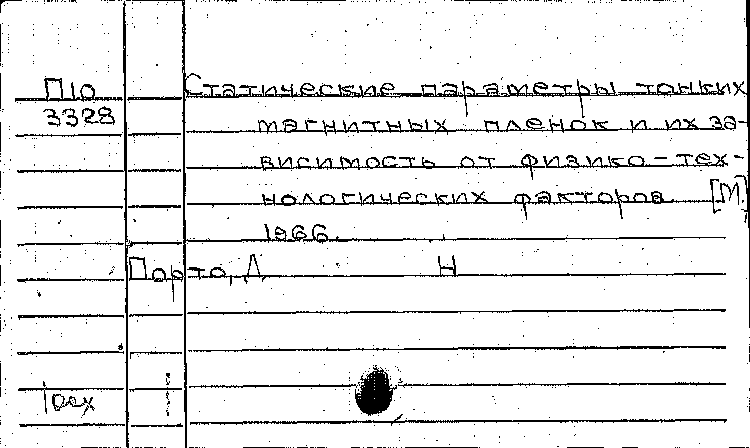 П10 Статические параметры тонких
3328 магнитных пленок и их за-
висимость от физико-тех-
нологических факторов. [М]
1966.
Порто, Д Н